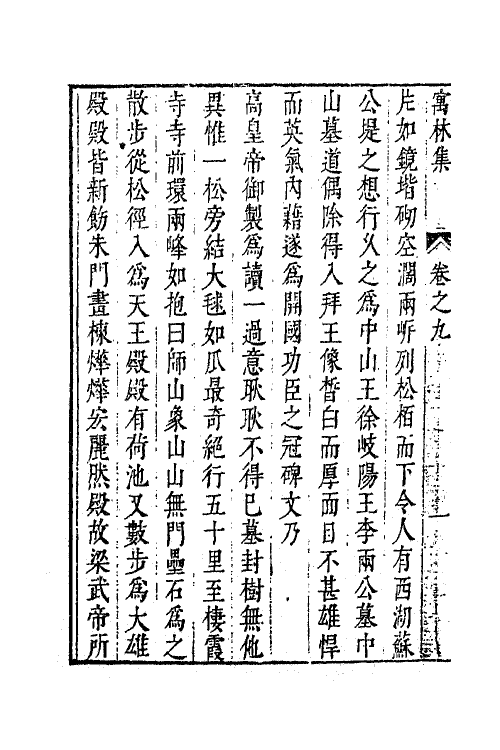 寓林集 卷之九
片如鏡堦砌空濶兩哷列松栢而下令人有西湖蘇
公堤之想行乆之爲中山王徐岐陽王李兩公墓中
山墓道偶除得入拜王像晳白而厚而目不甚雄悍
而英氣內藉遂爲開國功臣之冠碑文乃
高皇帝御製爲讀一過意耿耿不得已墓封樹無他
異惟一松旁結大毬如瓜最奇絕行五十里至棲霞
寺寺前環兩峰如抱曰師山象山山無門壘石爲之
散步從松徑入爲天王殿殿有荷池又數步爲大雄
殿殿皆新飭朱門畫棟燁燁宏麗然殿故梁武帝所